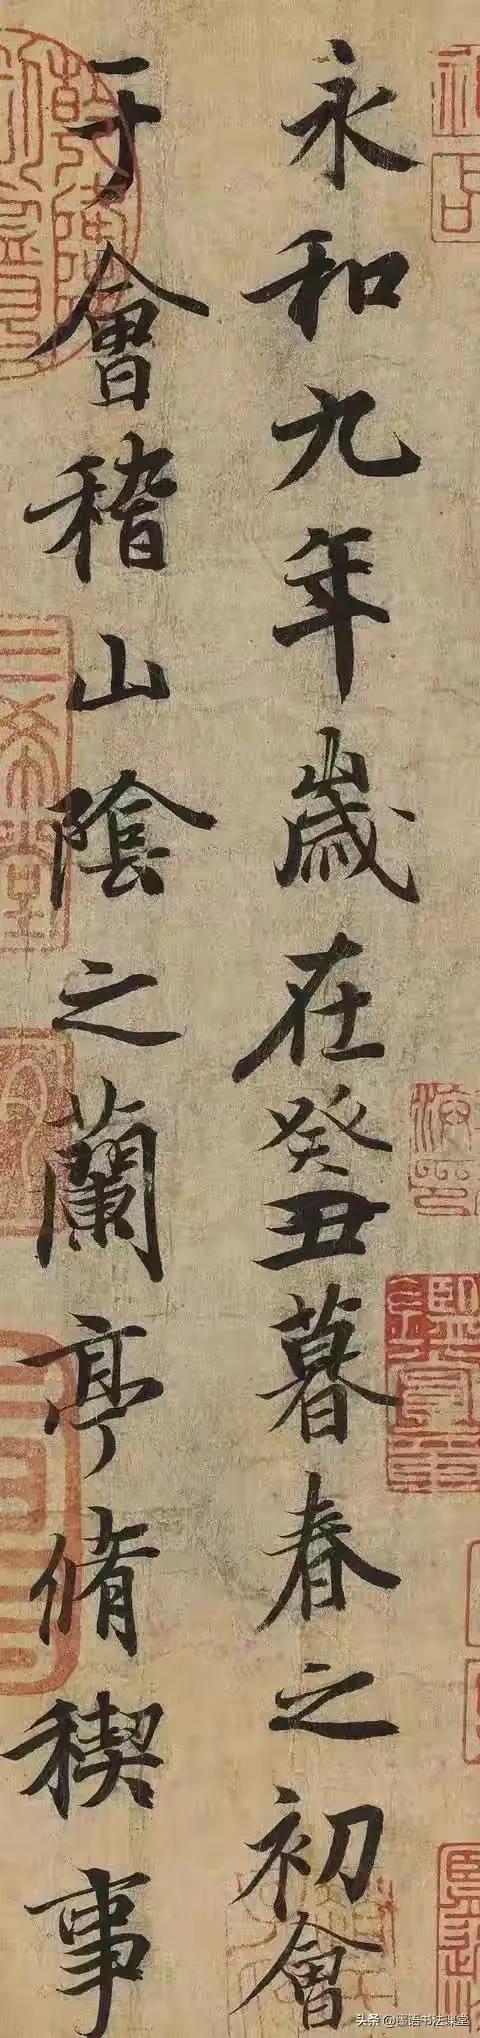 永和九年歲在癸丑暮春之初會
于會稽山陰之蘭亭脩稧事
三希堂
頭条 @墨语书法课堂